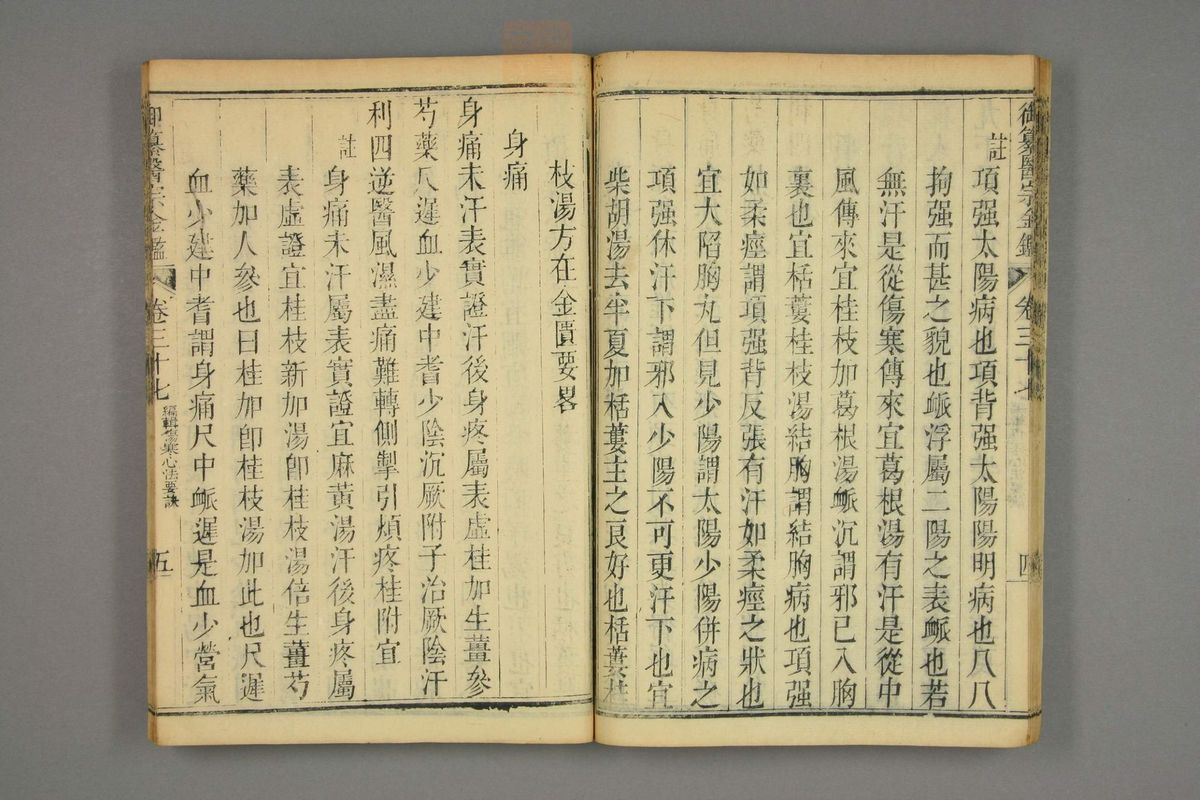 御纂醫宗金鑑 卷三十七 四
註項强太陽病也項背强太陽陽明病也几几
拘强而甚之貌也脈浮屬二陽之表脈也若
無汗是從傷寒傳來宜葛根湯有汗是從中
風傳來宜桂枝加葛根湯脈沉謂邪已入胸
裏也宜栝蔞桂枝湯結胸謂結胸病也項强
如柔痙謂項强背反張有汗如柔痙之狀也
宜大陷胸丸但見少陽謂太陽少陽併病之
項强休汗下謂邪入少陽不可更汗下也宜
柴胡湯去半夏加栝蔞主之良好也栝蔞桂
枝湯方在金匱要畧
身痛
身痛未汗表實證汗後身疼屬表虛桂加生薑參
芍藥尺遲血少建中耆少陰沉厥附子治厥陰汗
利四逆醫風濕盡痛難轉側掣引煩疼桂附宜
註身痛未汗屬表實證宜麻黃湯汗後身疼屬
表虛證宜桂枝新加湯卽桂枝湯倍生薑芍
藥加人參也曰桂加卽桂枝湯加此也尺遲
血少建中耆謂身痛尺中脈遲是血少營氣
御纂醫宗金鑑 卷三十七 編輯傷寒心法要訣 五